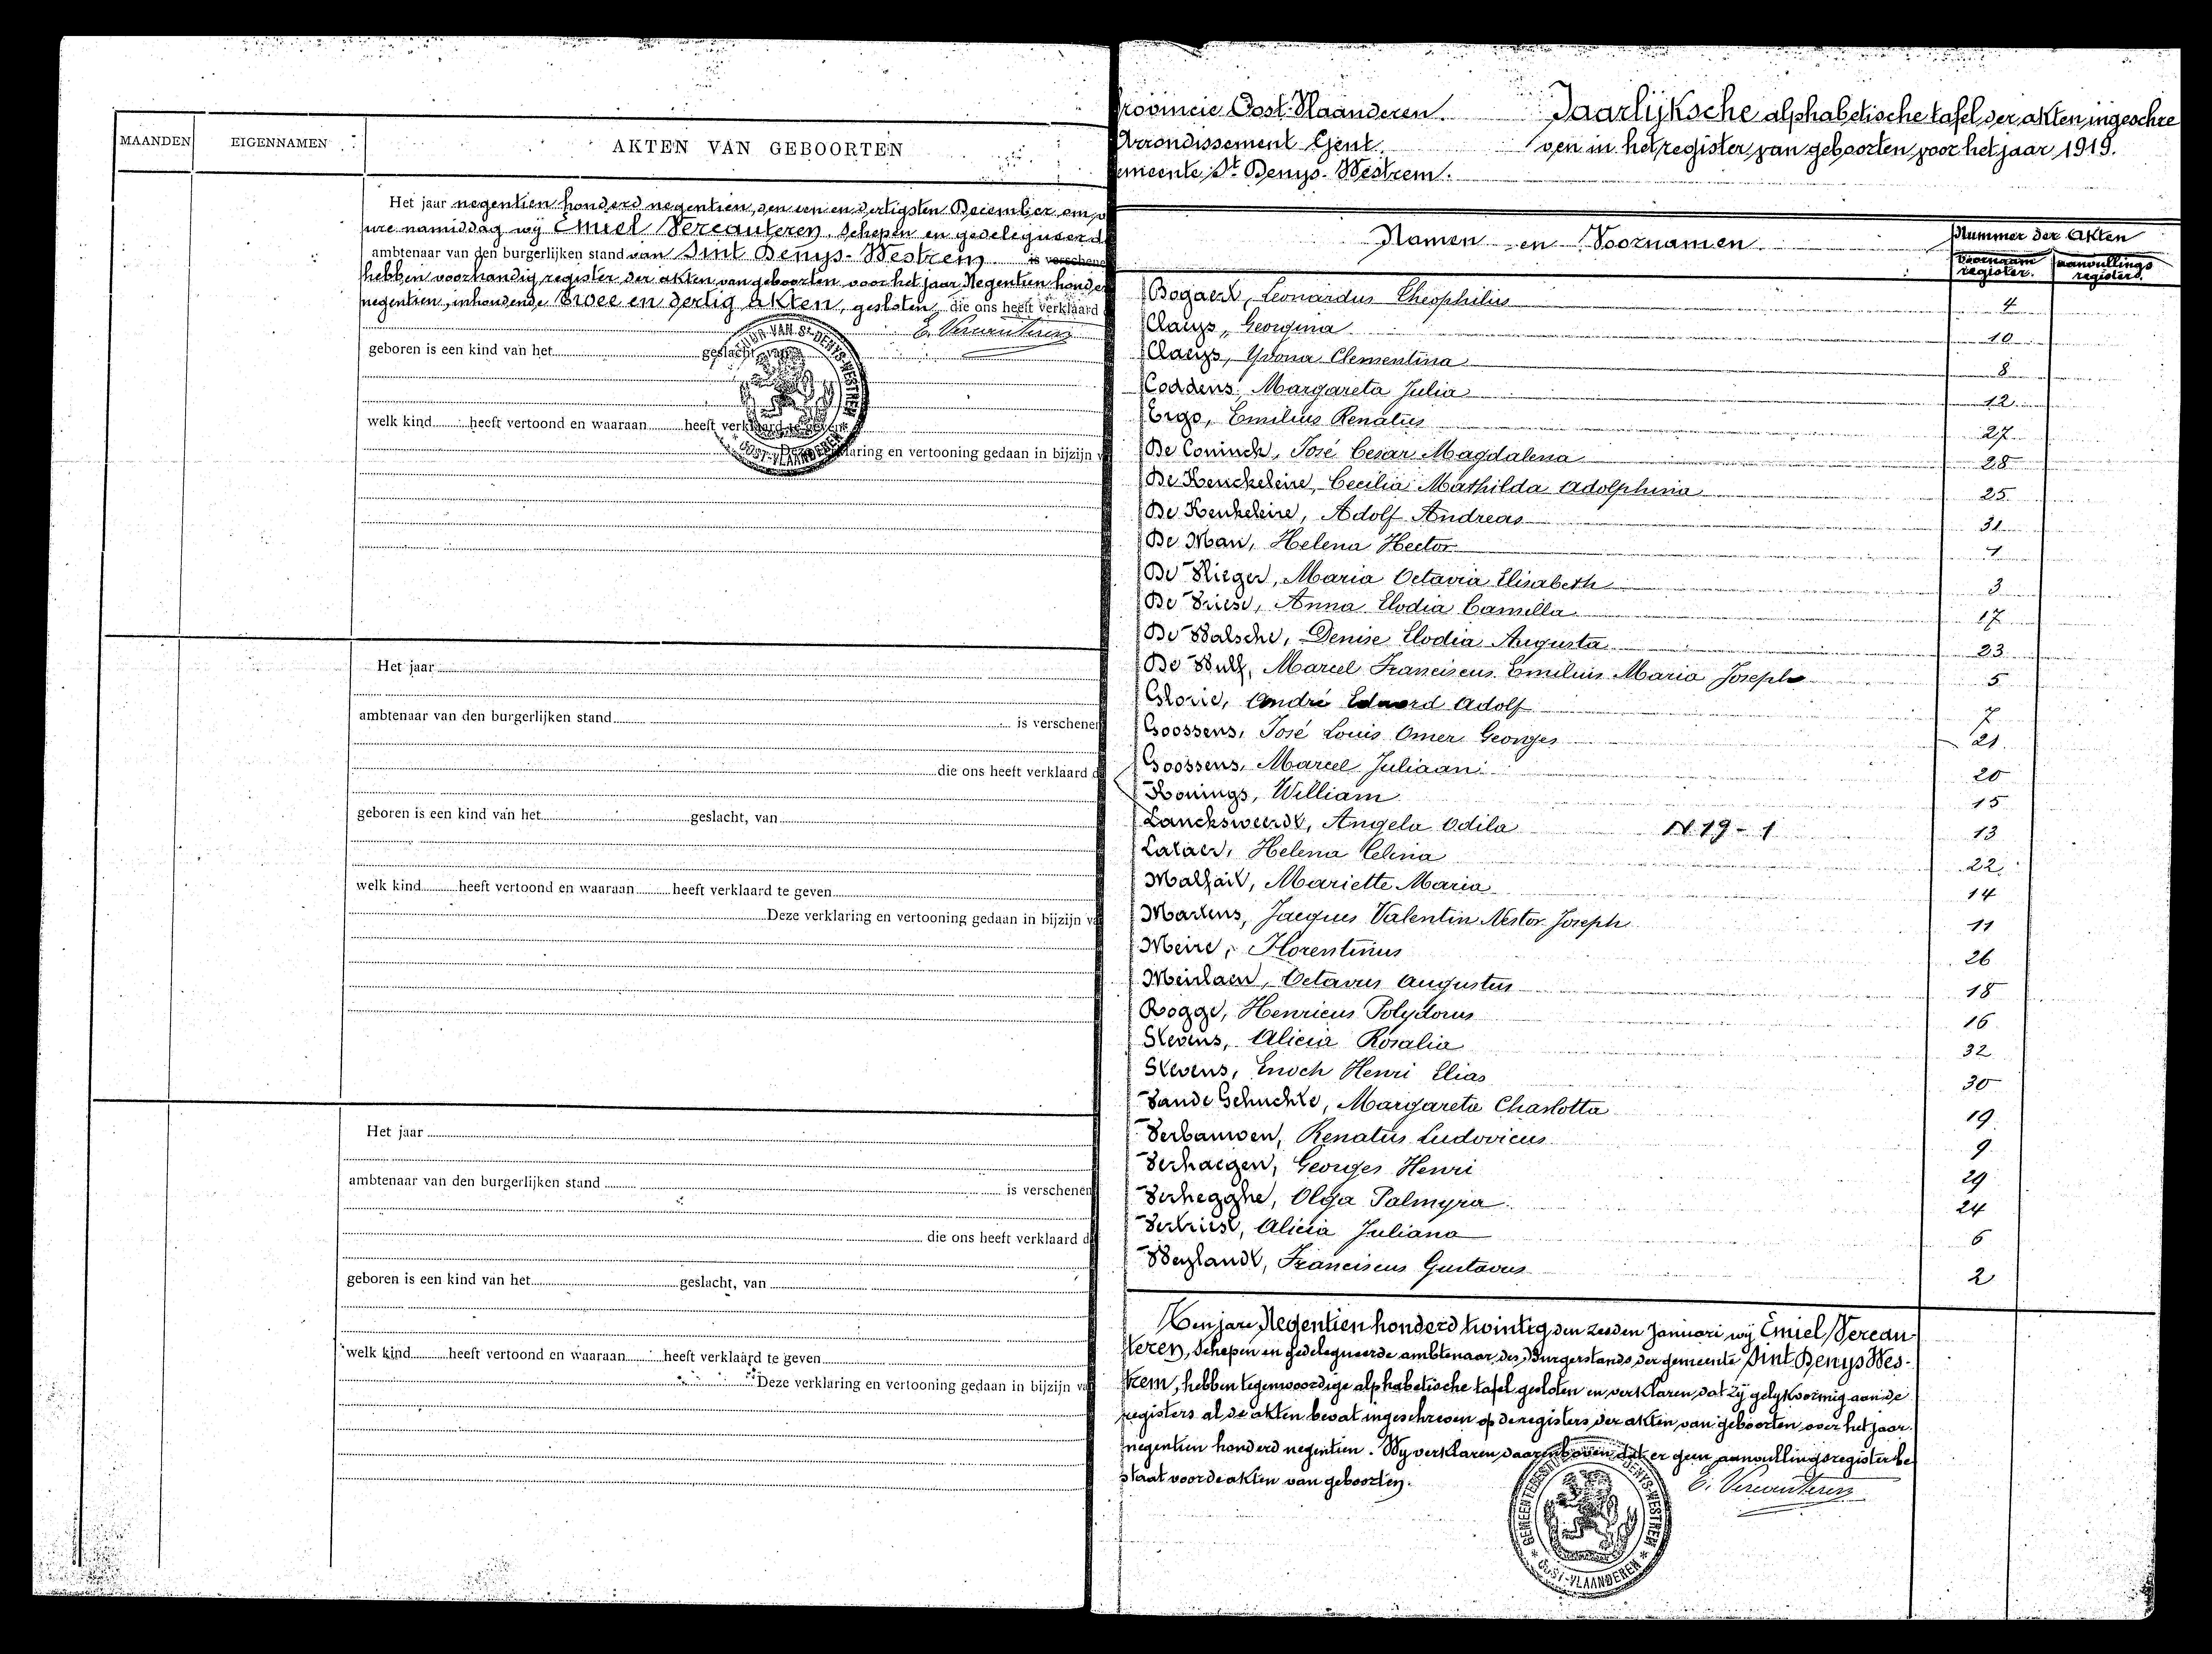 MAANDEN
EIGENNAMEN
AKTEN VAN GEBOORTEN
Het jaar negentien honderd negentien, den een en dertigsten December om
ure namiddag wij Emiel Vercauteren, Schepen en gedelegueerd
ambtenaar van den burgerlijken stand van Sint Denys-Westrem is verschene
hebben voorhandig register der akten van geboorten voor het jaar Negentien honder
negentien, inhoudende Twee en dertig akten, gesloten, die ons heeft verklaard
E. Vercauteren
geboren is een kind van het geslacht, van
welk kind heeft vertoond en waaraan heeft verklaard te geven
Deze verklaring en vertooning gedaan in bijzijn v
ST DENYS-WESTREM
OOST-VLAANDEREN
Het jaar
ambtenaar van den burgerlijken stand is verschenen
die ons heeft verklaard d
geboren is een kind van het geslacht, van
welk kind heeft vertoond en waaraan heeft verklaard te geven
Deze verklaring en vertooning gedaan in bijzijn va
Het jaar
ambtenaar van den burgerlijken stand is verschenen
die ons heeft verklaard d
geboren is een kind van het geslacht, van
welk kind heeft vertoond en waaraan heeft verklaard te geven
Deze verklaring en vertooning gedaan in bijzijn va
rovincie Oost-Vlaanderen. Jaarlijksche alphabetische tafel der akten ingeschre
Arrondissement Gent. ven in het register van geboorten voor het jaar 1919.
emeente St Denys-Westrem.
Namen en Voornamen Nummer der Akten
register. aanvullings registers.
Bogaert, Leonardus Theophilus 4
Claeys, Georgina 10
Claeys, Yvona Clementina 8
Coddens Margareta Julia 12
Ergo, Emilius Renatus 27
De Coninck, José Cesar Magdalena 28
De Keuckeleire, Cecilia Mathilda Adolphina 25
De Keukeleire, Adolf Andreas 31
De Man, Helena Hector 1
De Vlieger, Maria Octavia Elisabeth 3
De Vriese, Anna Elodia Camilla 17
De Walsche, Denise Elodia Augusta 23
De Wulf, Marcel Franciscus Emilius Maria Joseph 5
Glorie, André Eduard Adolf 7
Goossens, José Louis Omer Georges 21
Goossens, Marcel Juliaan 20
Konings, William 15
Lancksweerdt, Angela Odila N. 19 - 1 13
Lataer, Helena Celina 22
Malfait, Mariette Maria 14
Martens, Jacques Valentin Nestor Joseph 11
Meire, Florentinus 26
Meirlaen, Octavus Augustus 18
Rogge, Henricus Polydorus 16
Stevens, Alicia Rosalia 32
Stevens, Enoch Henri Elias 30
Vande Ghuchte, Margareta Charlotta 19
Verbauwen, Renatus Ludovicus 9
Verhaegen, Georges Henri 29
Verhegghe, Olga Palmyra 24
Vertriest, Alicia Juliana 6
Weylandt, Franciscus Gustavus 2
Ten jare Negentien honderd twintig den zesden Januari wij Emiel Vercau-
teren, Schepen en gedelegueerde ambtenaar des Burgerstands der gemeente Sint Denys Wes-
trem, hebben tegenwoordige alphabetische tafel gesloten en verklaren dat zij gelykvormig aan de
registers al de akten bevat ingeschreven op de registers der akten van geboorten over het jaar
negentien honderd negentien. Wy verklaren daarenboven dat er geen aanvullingsregister be
staat voor de akten van geboorten.
E. Vercauteren
DENYS-WESTREM
OOST-VLAANDEREN